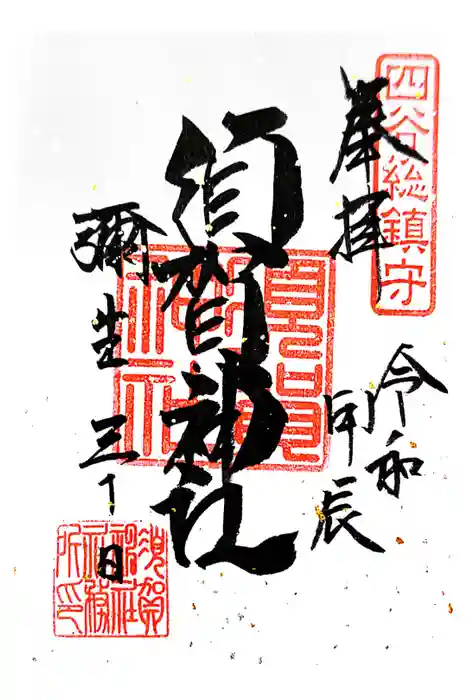 四谷総鎮守
奉拝
令和
甲辰
須賀神社
須賀神社
彌生三十日
須賀
神社
社務
所印